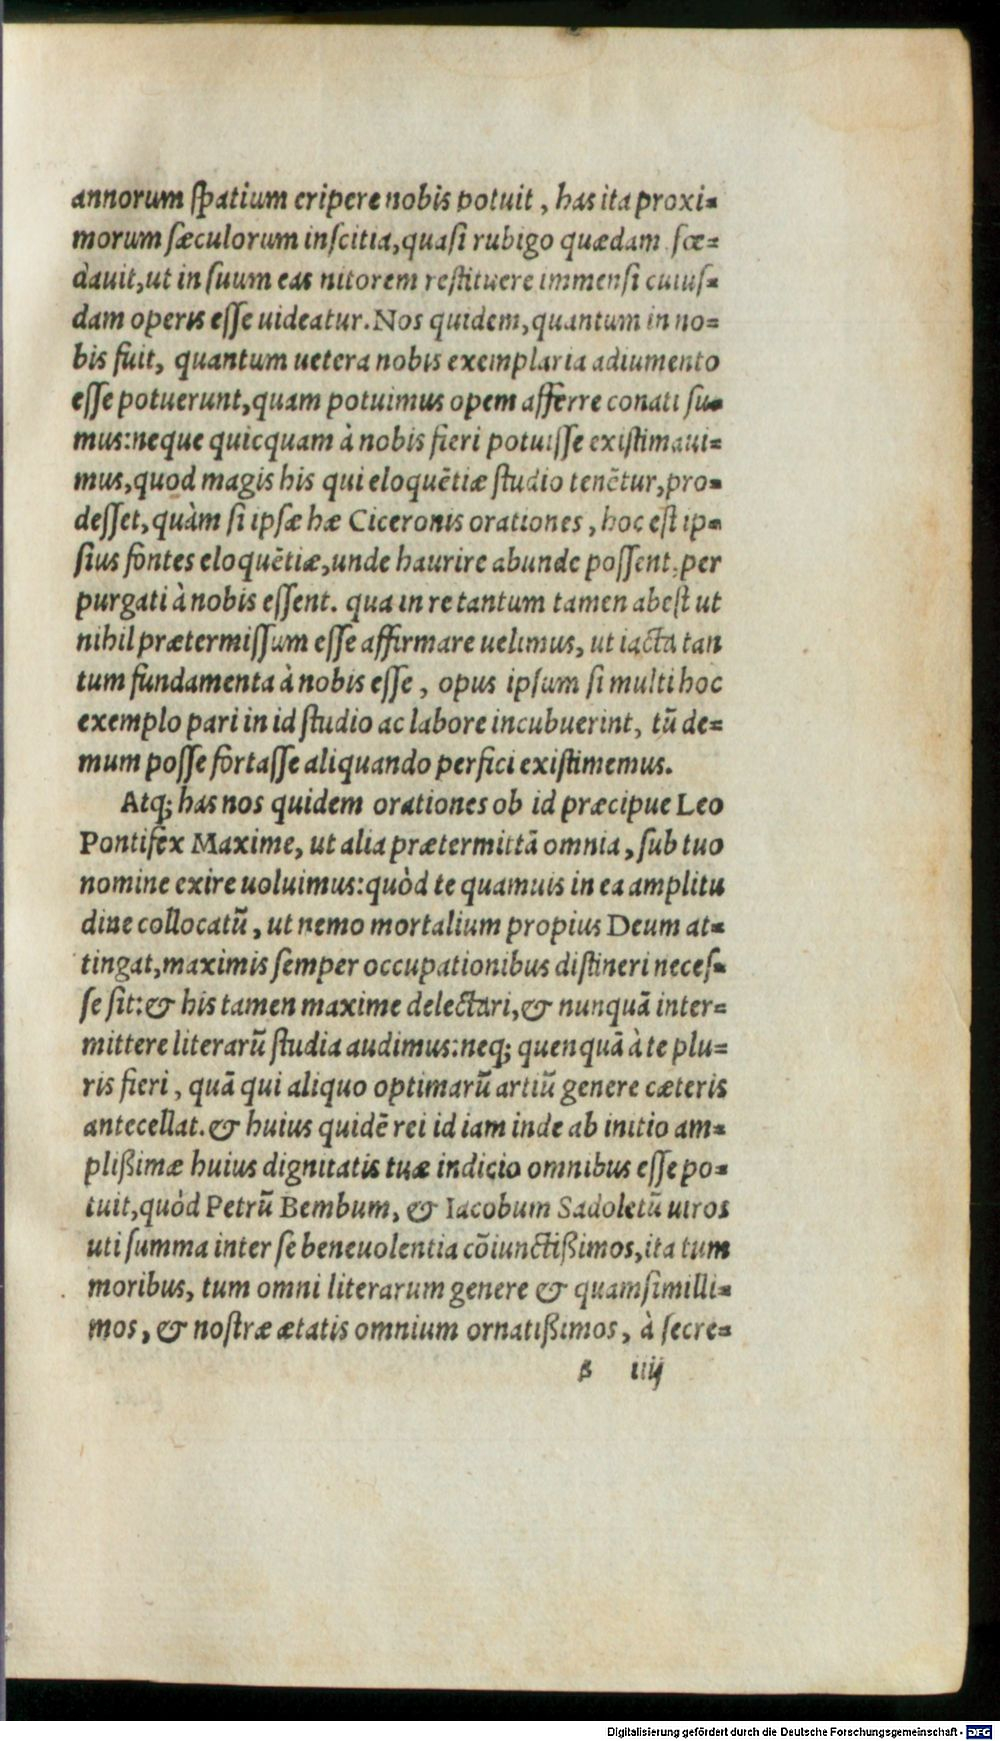 annorum spatium eripere nobis potuit, has ita proxi-
morum sæculorum inscitia, quasi rubigo quædam fœ-
dauit, ut in suum eas nitorem restituere immensi cuius-
dam operis esse uideatur. Nos quidem, quantum in no-
bis fuit, quantum uetera nobis exemplaria adiumento
esse potuerunt, quam potuimus opem afferre conati su-
mus: neque quicquam à nobis fieri potuisse existimaui-
mus, quod magis his qui eloquẽtiæ studio tenẽtur, pro-
desset, quàm si ipsæ hæ Ciceronis orationes, hoc est ip-
sius fontes eloquẽtiæ, unde haurire abunde possent. per
purgati à nobis essent. qua in re tantum tamen abest ut
nihil prætermissum esse affirmare uelimus, ut iacta tan
tum fundamenta à nobis esse, opus ipsum si multi hoc
exemplo pari in id studio ac labore incubuerint, tũ de-
mum posse fortasse aliquando perfici existimemus.
Atq; has nos quidem orationes ob id præcipue Leo
Pontifex Maxime, ut alia prætermittã omnia, sub tuo
nomine exire uoluimus: quòd te quamuis in ea amplitu
dine collocatũ, ut nemo mortalium propius Deum at-
tingat, maximis semper occupationibus distineri neces-
se sit: & his tamen maxime delectari, & nunquã inter-
mittere literarũ studia audimus: neq; quenquã à te plu-
ris fieri, quã qui aliquo optimarũ artiũ genere cæteris
antecellat. & huius quidẽ rei id iam inde ab initio am-
plißimæ huius dignitatis tuæ indicio omnibus esse po-
tuit, quòd Petrũ Bembum, & Iacobum Sadoletũ uiros
uti summa inter se beneuolentia cõiunctißimos, ita tum
moribus, tum omni literarum genere & quamsimilli-
mos, & nostræ ætatis omnium ornatißimos, à secre-
β iiij
Digitalisierung gefördert durch die Deutsche Forschungsgemeinschaft - DFG